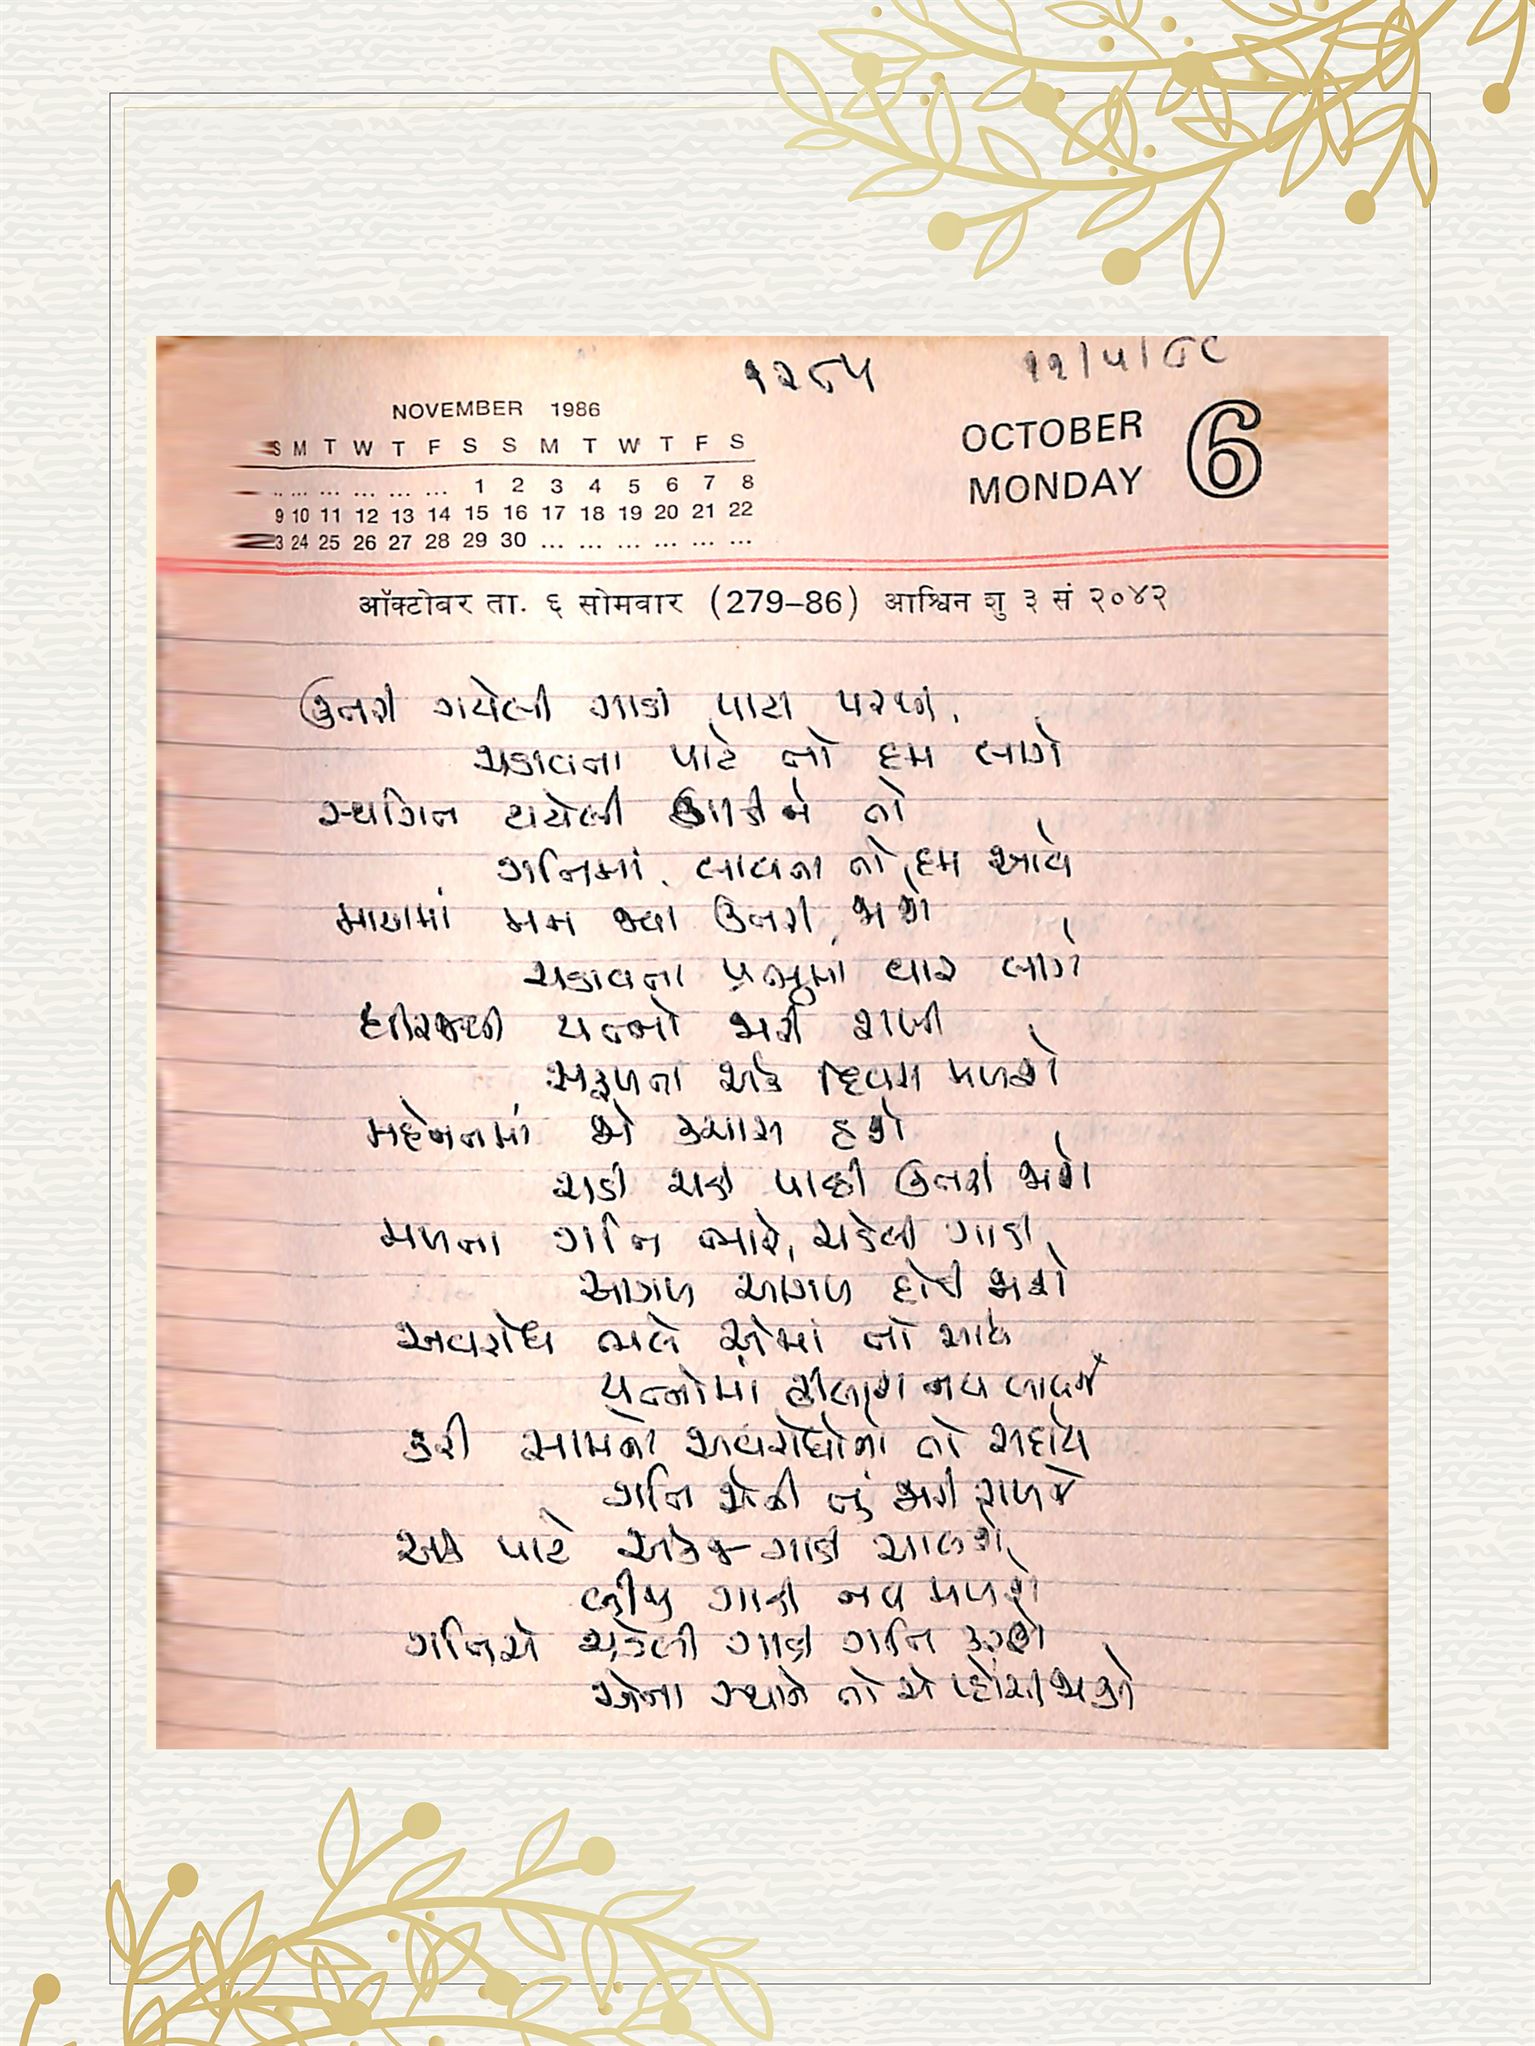 ૧૨૯૫
૧૧/૫/૮૮
NOVEMBER 1986
S M T W T F S S M T W T F S
.. ... ... ... ... ... 1 2 3 4 5 6 7 8
9 10 11 12 13 14 15 16 17 18 19 20 21 22
3 24 25 26 27 28 29 30 ... ... ... ... ... ...
OCTOBER
MONDAY 6
ऑक्टोबर ता. ६ सोमवार (279–86) आश्विन शु ३ सं २०४२
ઉતરી ગયેલી ગાડી પાટા પરથી,
ચડાવતા પાટે તો દમ લાગે
સ્થગિત થયેલી ગાડીને તો
ગતિમાં લાવતા તો દમ આવે
માયામાં મન જ્યાં ઉતરી જાશે
ચડાવતા પ્રભુમાં વાર લાગે
ધીરજથી યત્નો જારી રાખી
સફળતા એક દિવસ મળશે
મહેનતમાં જો કચાશ હશે
ચડી ચડી પાછી ઉતરી જાશે
મળતા ગતિ ભારે, ચડેલી ગાડી
આગળ આગળ દોડી જાશે
અવરોધ ભલે એમાં તો આવે
યત્નોમાં ઢીલાશ નવ લાવજે
કરી સામનો અવરોધોનો તો સદાય
ગતિ એની તું જારી રાખજે
એક પાટે એકજ ગાડી ચાલશે
બીજી ગાડી નવ મળશે
ગતિએ ચડેલી ગાડી ગતિ કરશે
એના સ્થાને તો એ પ્હોંચી જાશે